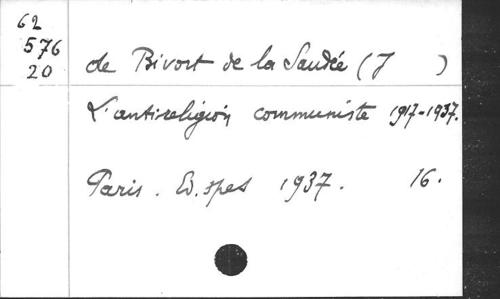 62
576
20
de Bivort de la Saudée (J )
L'antireligión communiste 1917-1937.
Paris. Ed. Spes 1937. 16.